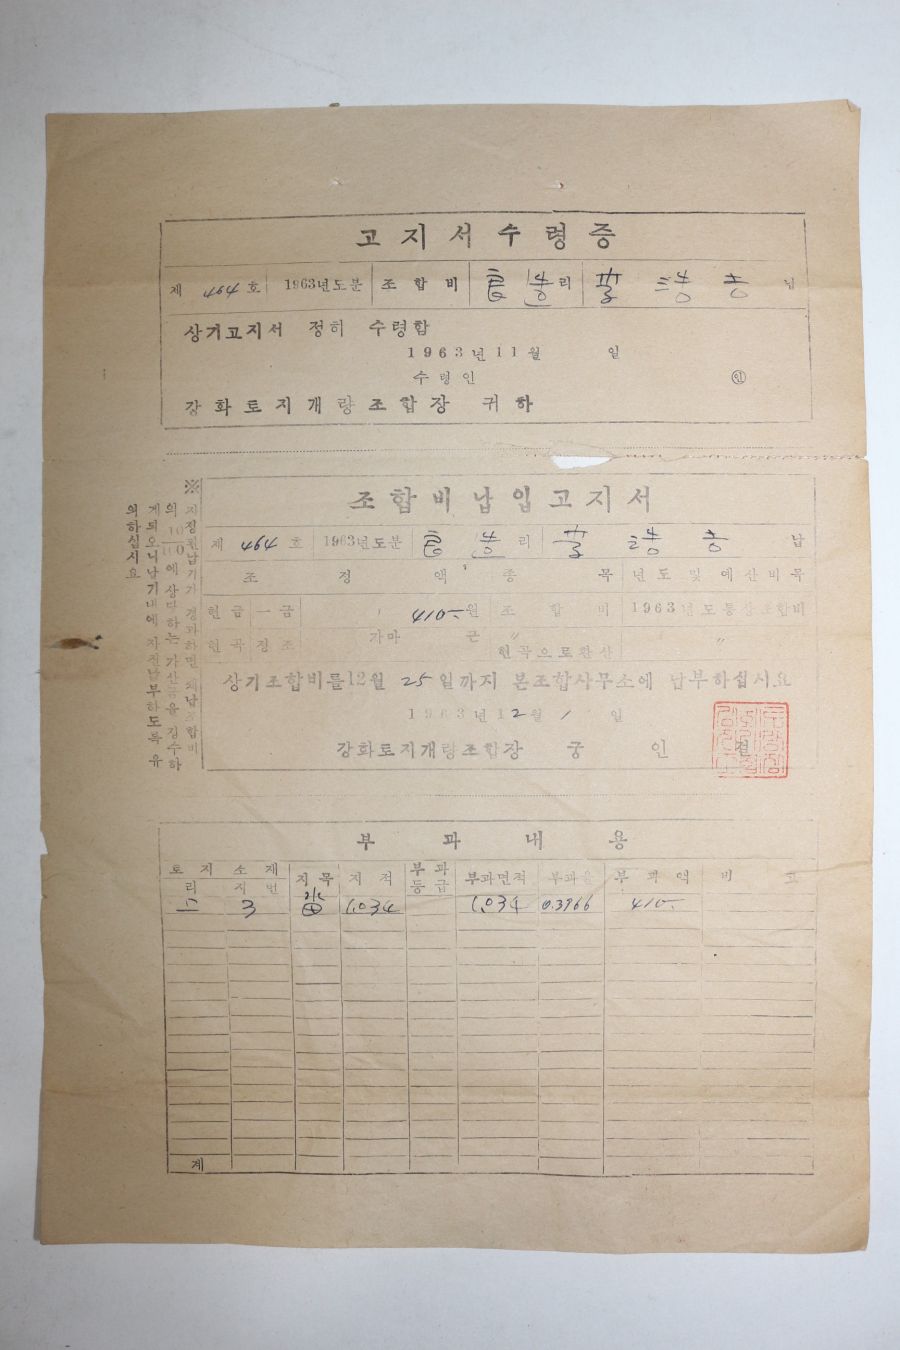 고지서수령증
제 464 호 1963년도분 조합비 리 浩 님
상기고지서 정히 수령함
1963년 11월 일
수령인 ㊞
강화토지개량조합장 귀하
조합비납입고지서
제 464 호 1963년도분 리 浩 납
조정액 종목 년도 및 예산비목
현금 일금 410- 원 조합비 1963년도통상조합비
현곡 정조 가마 근 〃 현곡으로환산 〃
상기조합비를12월 25일까지 본조합사무소에 납부하십시요
1963년 12월 1 일
강화토지개량조합장 궁 인 결
※ 지정된납기가 경과하면 체납조합비
의 10/100에 상당하는 가산금을 징수하
게되오니납기내에 자진납부하도록 유
의하십시요
부과내용
토지소재 지목 지적 부과등급 부과면적 부과율 부과액 비고
리 지번
3 1.034 1.034 0.3966 410-
계